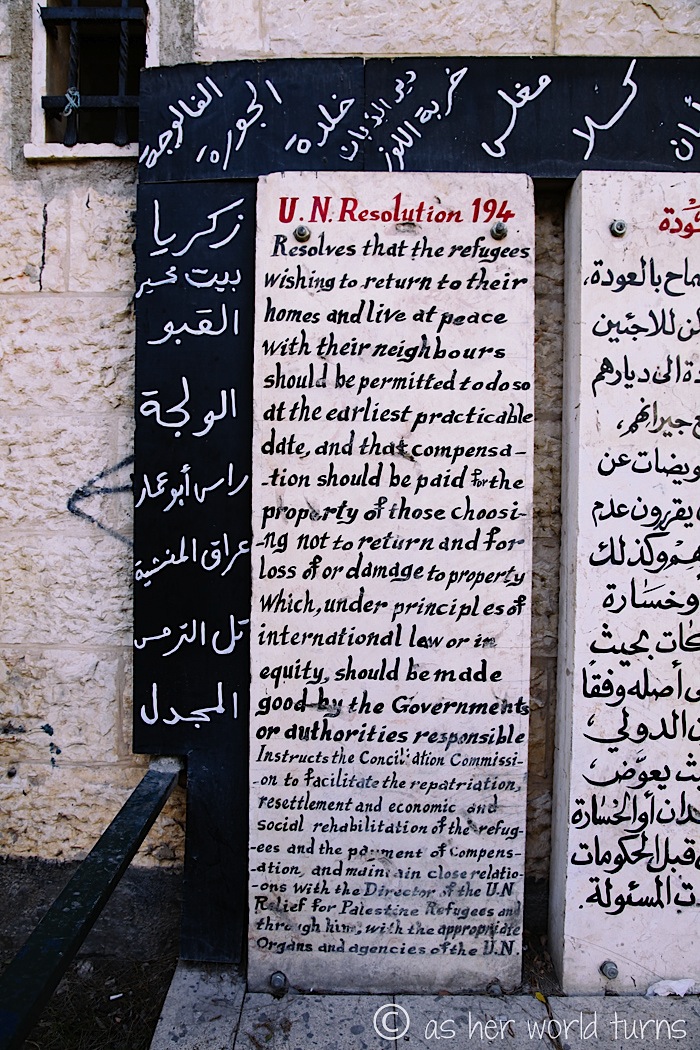 كسلا مغلس خربة اللوز دير الذبان خلدة الجورة الفالوجة
زكريا
بيت محسير
القبو
الولجة
راس أبو عمار
عراق المنشية
تل الترمس
المجدل
U.N. Resolution 194
Resolves that the refugees
wishing to return to their
homes and live at peace
with their neighbours
should be permitted to do so
at the earliest practicable
date, and that compensa-
-tion should be paid for the
property of those choosi-
-ng not to return and for
loss of or damage to property
which, under principles of
international law or in
equity, should be made
good by the Governments
or authorities responsible
Instructs the Conciliation Commissi-
-on to facilitate the repatriation,
resettlement and economic and
social rehabilitation of the refug-
-ees and the payment of Compens-
-ation, and maintain close relatio-
-ons with the Director of the U.N
Relief for Palestine Refugees and
through him, with the appropriate
Organs and agencies of the U.N.
بالعودة،
للاجئين
الى ديارهم
جيرانهم،
عن
يقررون عدم
وكذلك
وخسارة
بحيث
أصله وفقاً
الدولي،
يعوّض،
أو الخسارة
قبل الحكومات
المسئولة.
© as her world turns